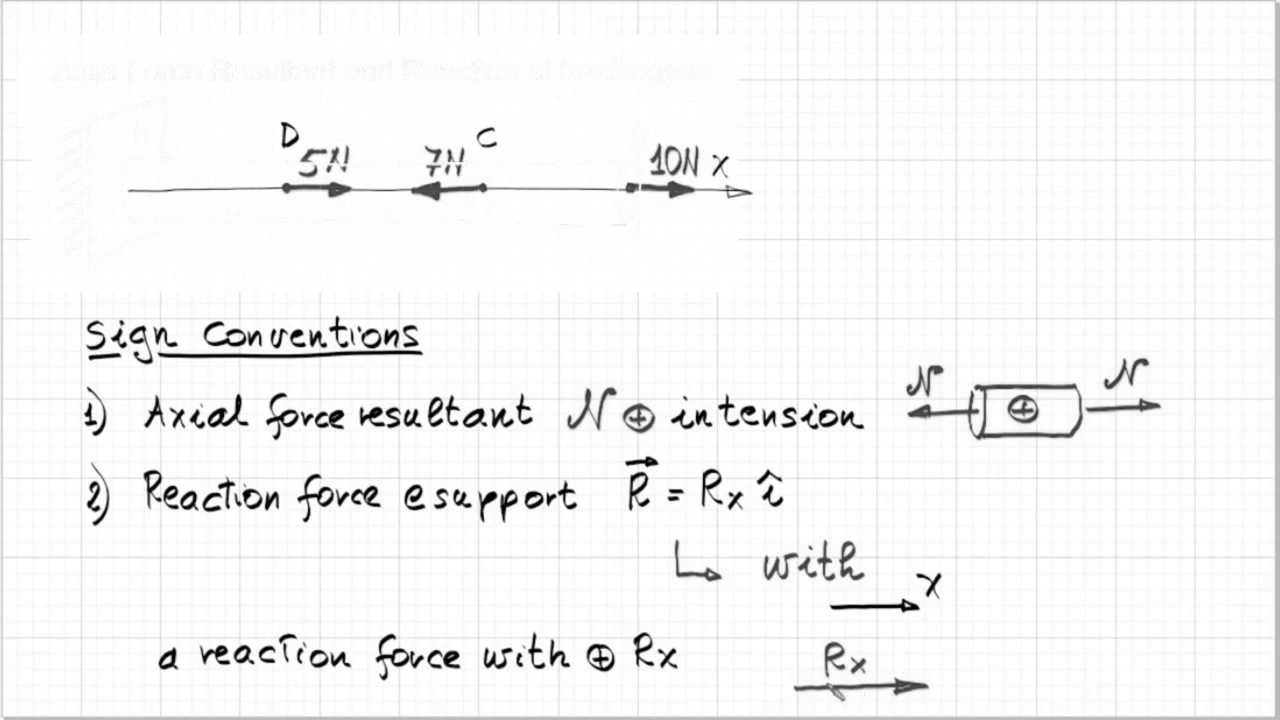 Axial Force Resultant and Reaction at the Support
D C
5N 7N 10N x
Sign Conventions
1) Axial force resultant N ⊕ in tension N ⊕ N
2) Reaction force @ support R⃗ = Rx î
↳ with x
a reaction force with ⊕ Rx Rx